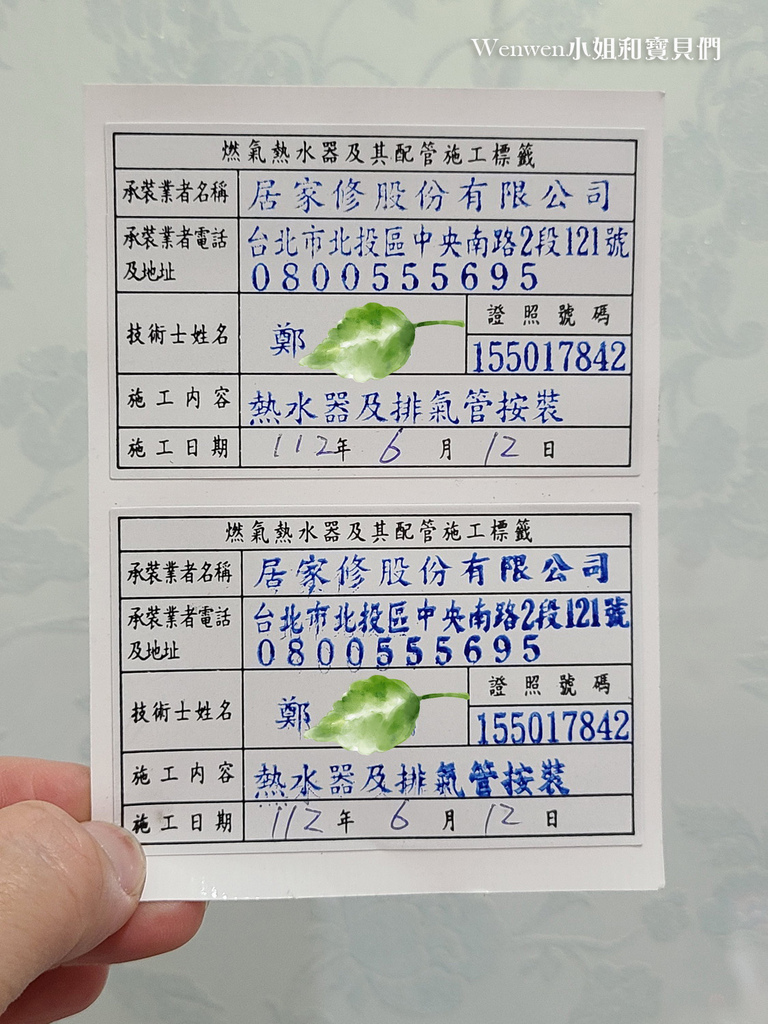 Wenwen小姐和寶貝們
燃氣熱水器及其配管施工標籤
承裝業者名稱 居家修股份有限公司
承裝業者電話及地址 台北市北投區中央南路2段121號
0800555695
技術士姓名 鄭
證照號碼
155017842
施工內容 熱水器及排氣管按裝
施工日期 112年 6 月 12 日
燃氣熱水器及其配管施工標籤
承裝業者名稱 居家修股份有限公司
承裝業者電話及地址 台北市北投區中央南路2段121號
0800555695
技術士姓名 鄭
證照號碼
155017842
施工內容 熱水器及排氣管按裝
施工日期 112年 6 月 12 日